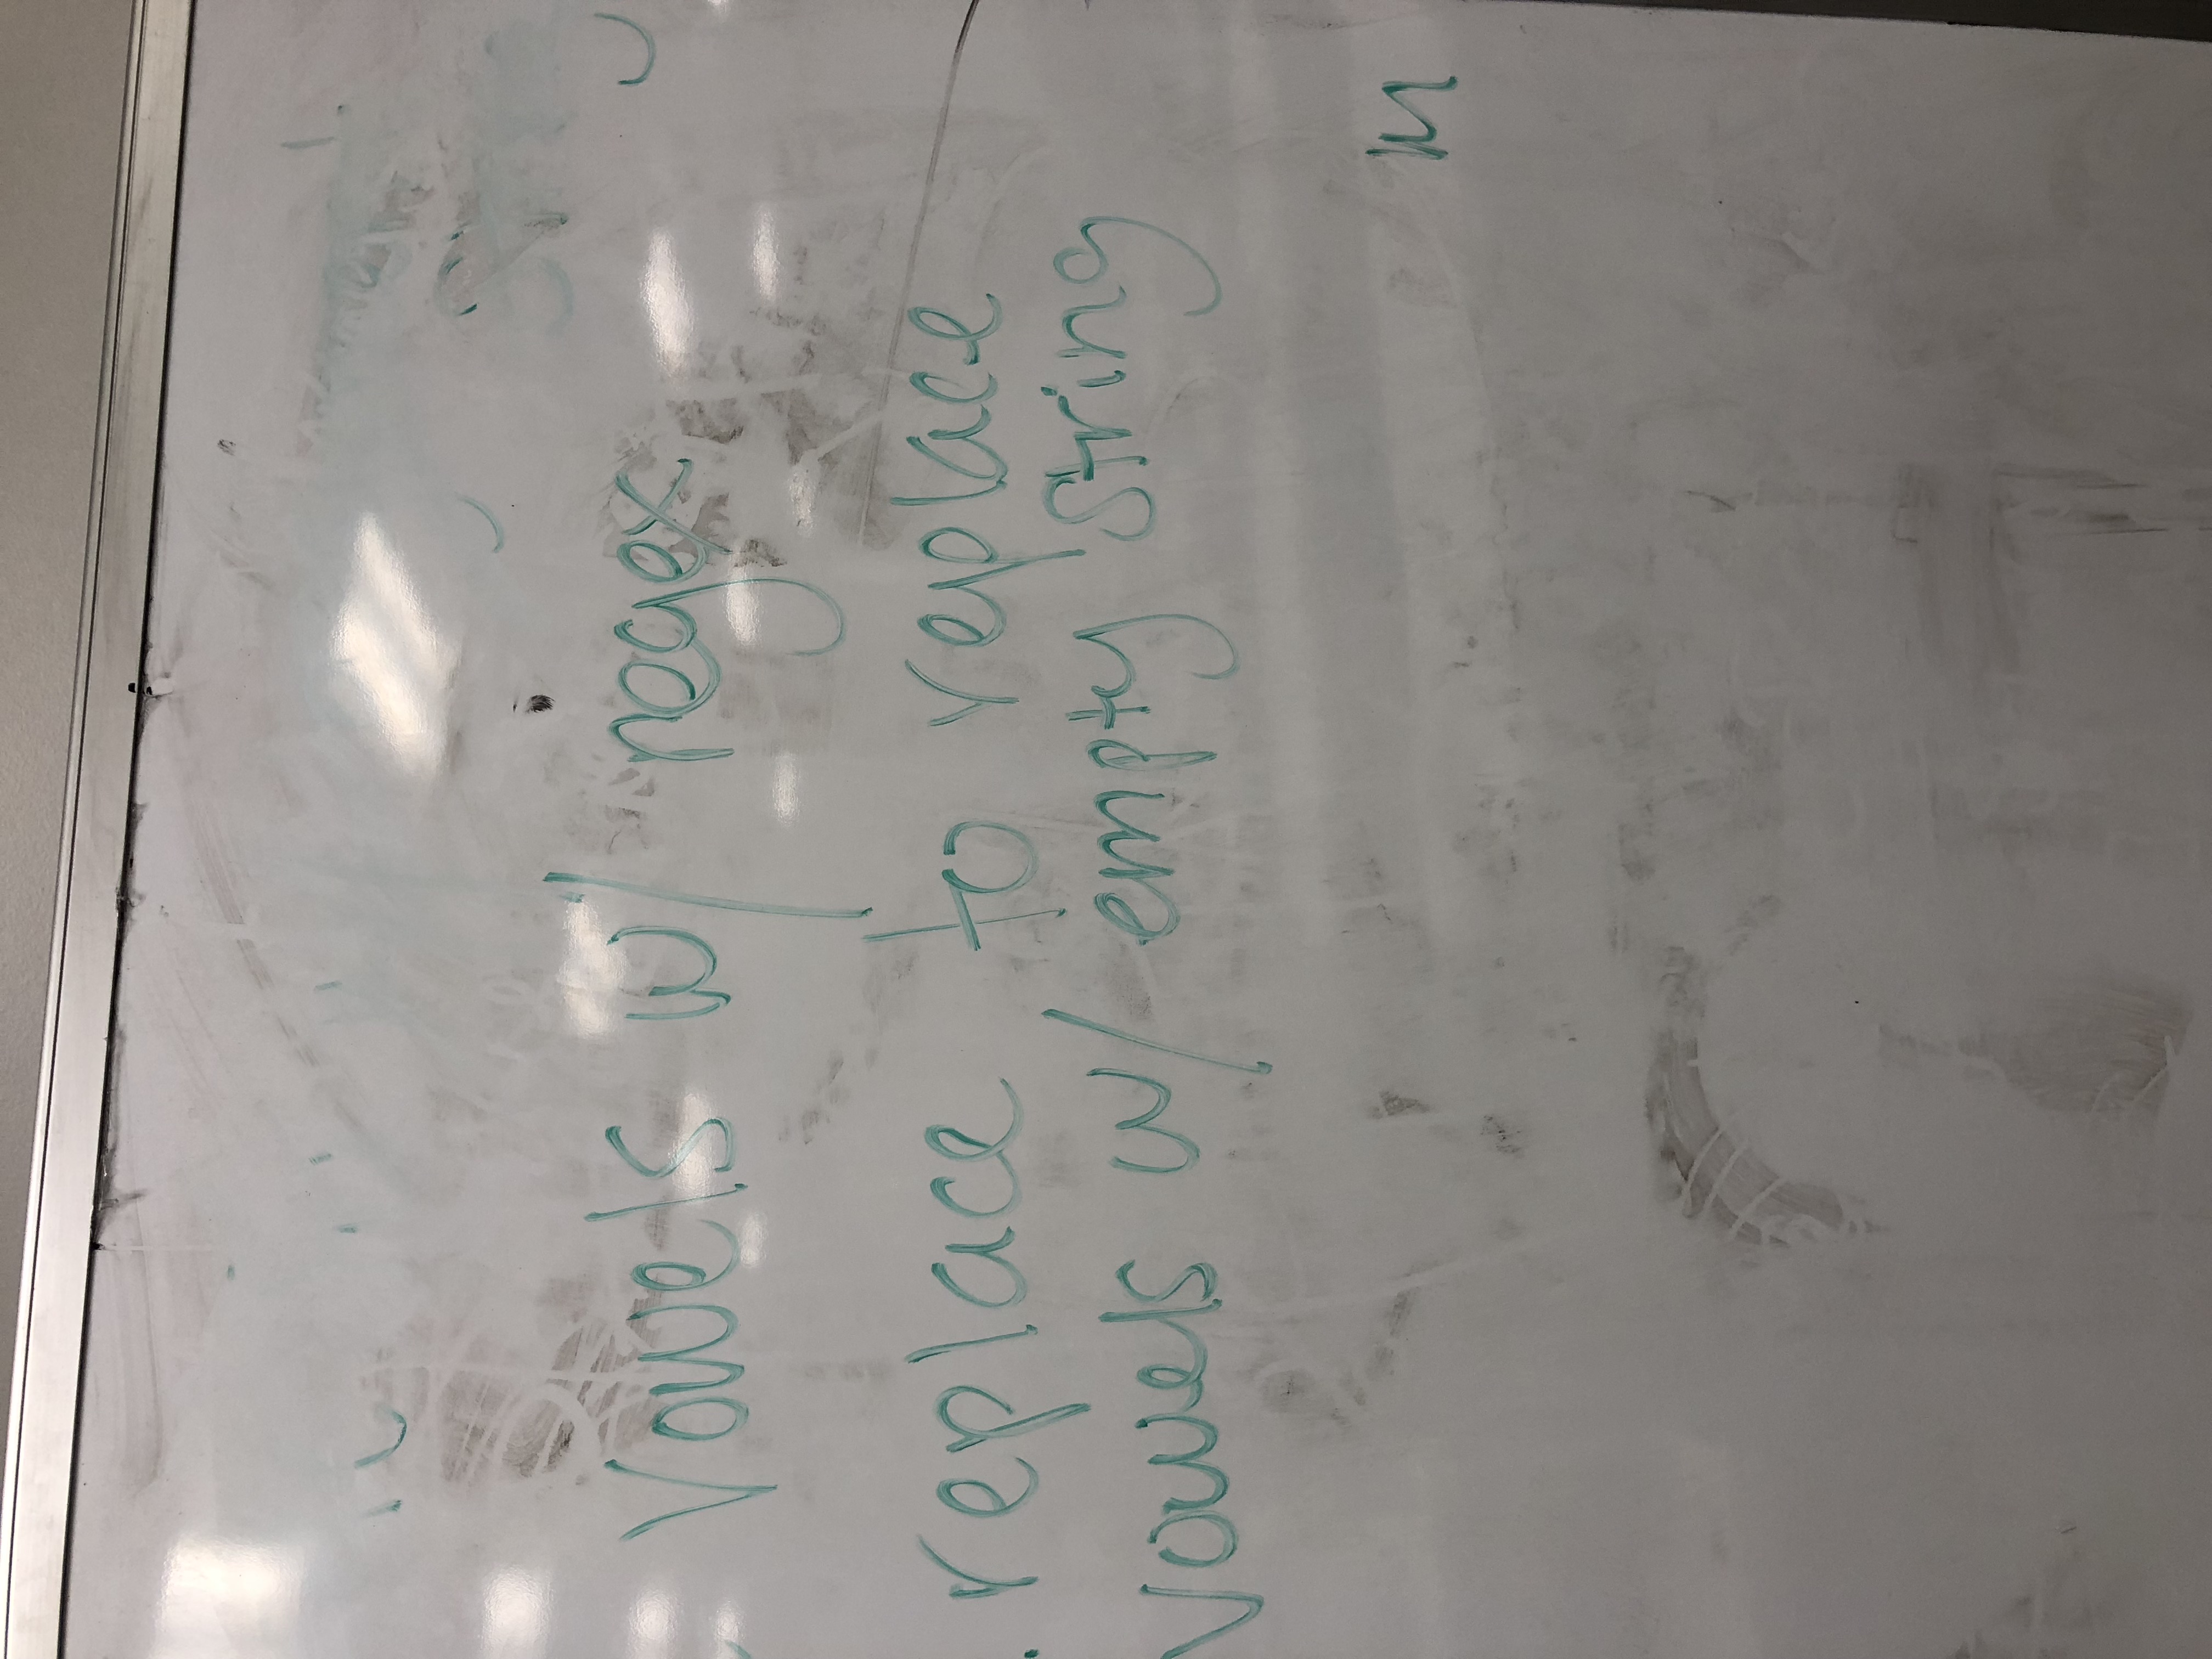 vowels w/ regex
.replace to replace
vowels w/ empty string